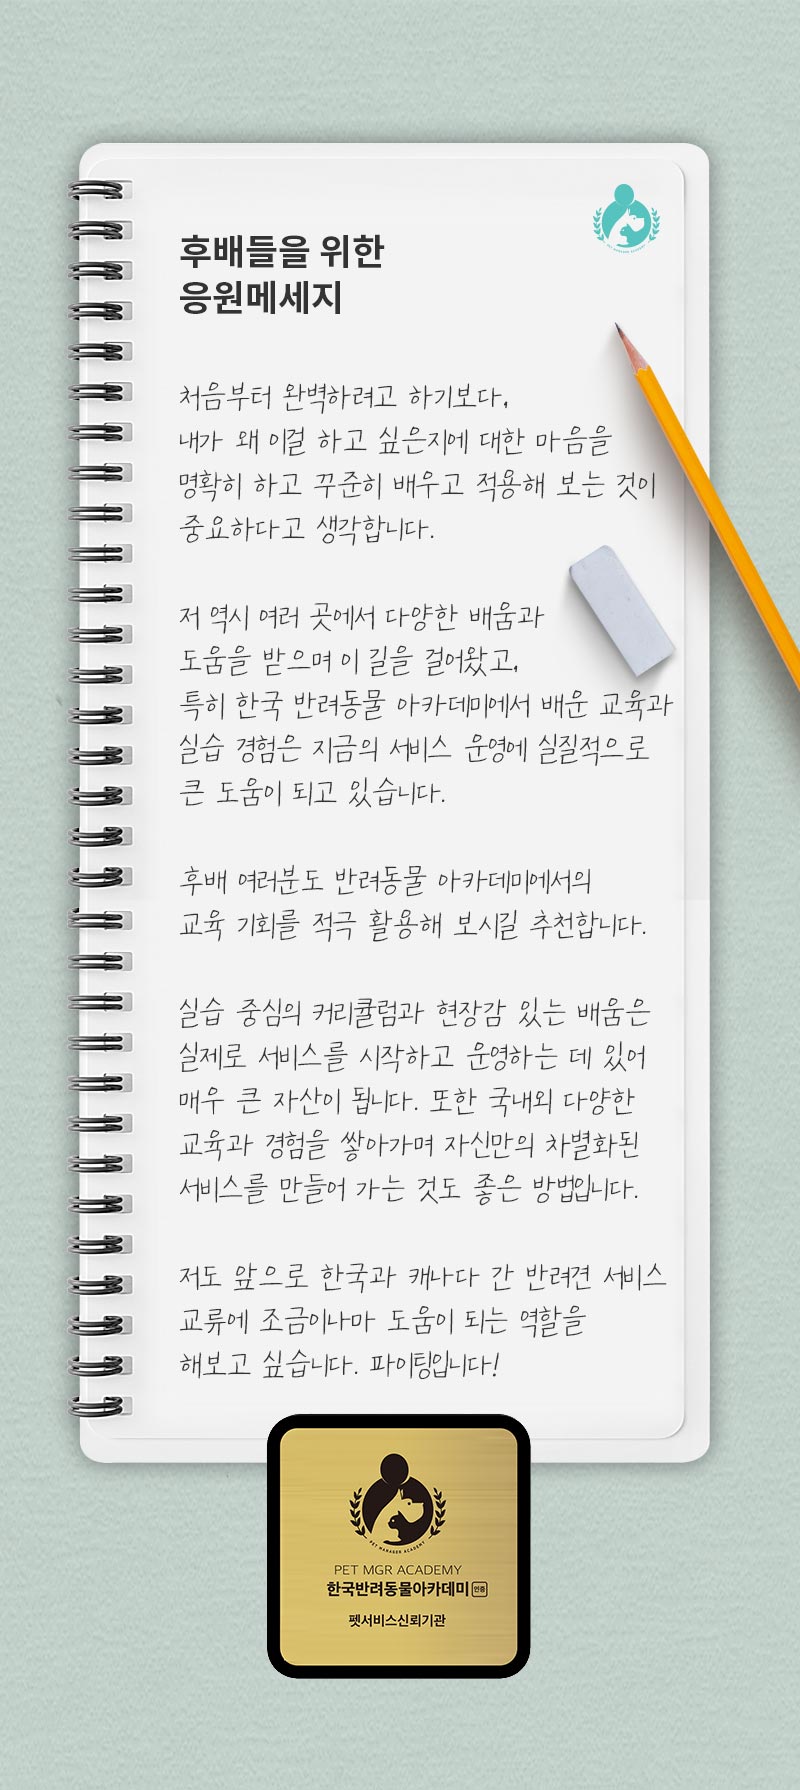 후배들을 위한
응원메세지
처음부터 완벽하려고 하기보다,
내가 왜 이걸 하고 싶은지에 대한 마음을
명확히 하고 꾸준히 배우고 적용해 보는 것이
중요하다고 생각합니다.
저 역시 여러 곳에서 다양한 배움과
도움을 받으며 이 길을 걸어왔고,
특히 한국 반려동물 아카데미에서 배운 교육과
실습 경험은 지금의 서비스 운영에 실질적으로
큰 도움이 되고 있습니다.
후배 여러분도 반려동물 아카데미에서의
교육 기회를 적극 활용해 보시길 추천합니다.
실습 중심의 커리큘럼과 현장감 있는 배움은
실제로 서비스를 시작하고 운영하는 데 있어
매우 큰 자산이 됩니다. 또한 국내외 다양한
교육과 경험을 쌓아가며 자신만의 차별화된
서비스를 만들어 가는 것도 좋은 방법입니다.
저도 앞으로 한국과 캐나다 간 반려견 서비스
교류에 조금이나마 도움이 되는 역할을
해보고 싶습니다. 파이팅입니다!
PET MANAGER ACADEMY
PET MGR ACADEMY
한국반려동물아카데미 인증
펫서비스신뢰기관